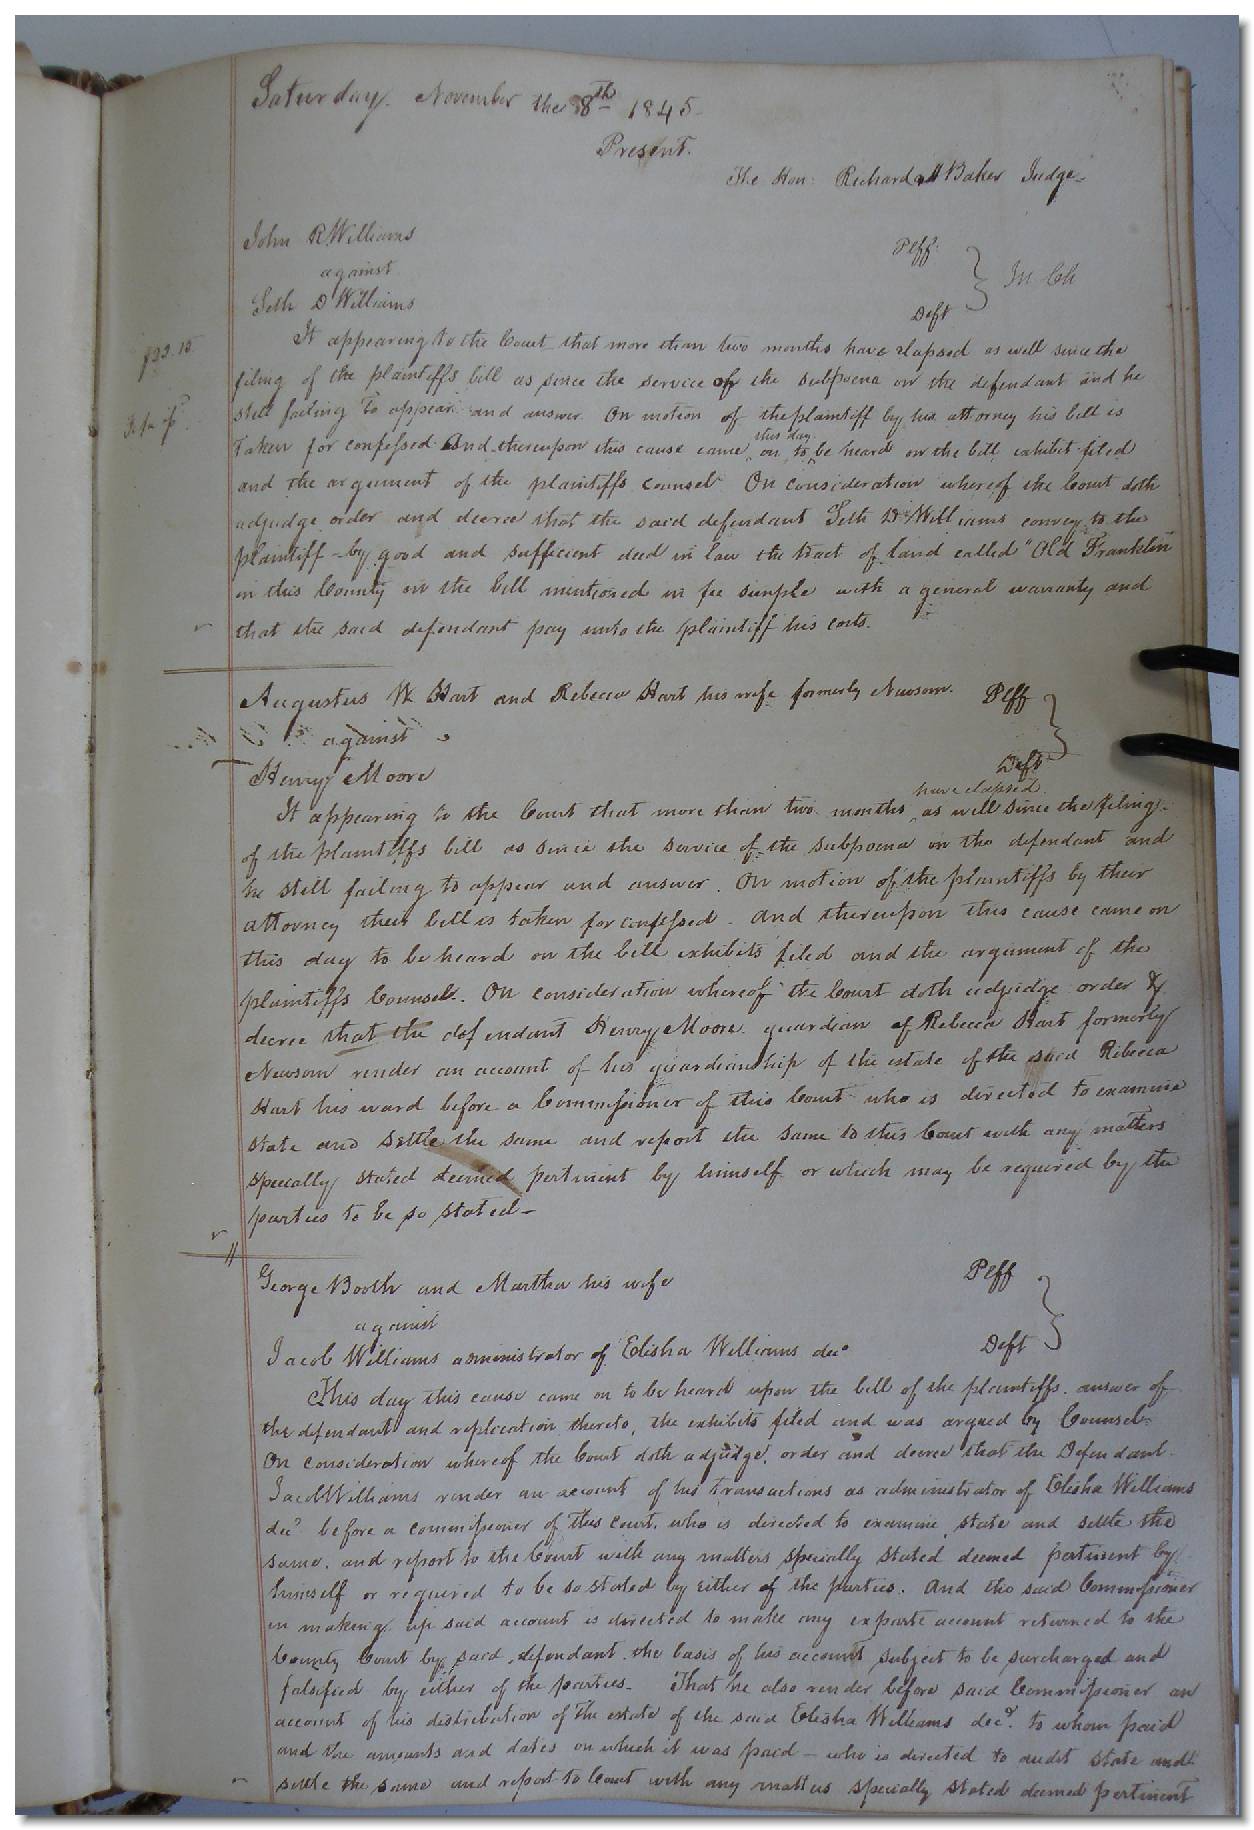 Saturday. November the 8th 1845
Present.
The Hon: Richard H Baker Judge
John R Williams Plff.
against In Ch
Seth D Williams Deft
It appearing to the Court that more than two months have elapsed as well since the
$23.15
filing of the plaintiffs bill as since the service of the subpoena on the defendant and he
still failing to appear and answer On motion of the plaintiff by his attorney his bill is
taken for confessed And thereupon this cause came this day on to be heard on the bill exhibit filed
and the argument of the plaintiffs counsel On consideration whereof the Court doth
adjudge order and decree that the said defendant Seth D Williams convey to the
plaintiff - by good and sufficient deed in law the tract of land called "Old Franklin
in this County in the bill mentioned in fee simple with a general warranty and
that the said defendant pay unto the plaintiff his costs.
Augustus W. Hart and Rebecca Hart his wife formerly Newsom. Plff
against
Henry Moore Deft
It appearing to the Court that more than two months have elapsed as well since the filing
of the plaintiffs bill as since the service of the subpoena on the defendant and
he still failing to appear and answer. On motion of the plaintiffs by their
attorney their bill is taken for confessed. And thereupon this cause came on
this day to be heard on the bill exhibits filed and the argument of the
plaintiffs Counsel. On consideration whereof the Court doth adjudge order &
decree that the defendant Henry Moore guardian of Rebecca Hart formerly
Newsom render an account of his guardianship of the estate of the said Rebecca
Hart his ward before a Commissioner of this Court who is directed to examine
state and settle the same and report the same to this Court with any matters
specially stated deemed pertinent by himself or which may be required by the
parties to be so stated-
George Booth and Martha his wife Plff
against
Jacob Williams administrator of Elisha Williams decd Deft
This day this cause came on to be heard upon the bill of the plaintiffs. answer of
the defendant and replication thereto, the exhibits filed and was argued by Counsel-
On consideration whereof the Court doth adjudge, order and decree that the Defendant
Jacob Williams render an account of his transactions as administrator of Elisha Williams
decd before a commissioner of this Court, who is directed to examine state and settle the
same, and report to the Court with any matters specially stated deemed pertinent by
himself or required to be so stated by either of the parties. And the said Commissioner
in making up said account is directed to make any exparte account returned to the
County Court by said defendant the basis of his account subject to be surcharged and
falsified by either of the parties- That he also render before said Commissioner an
account of his distribution of the estate of the said Elisha Williams decd. to whom paid
and the amounts and dates on which it was paid - who is directed to audit state and
settle the same and report to Court with any matters specially stated deemed pertinent